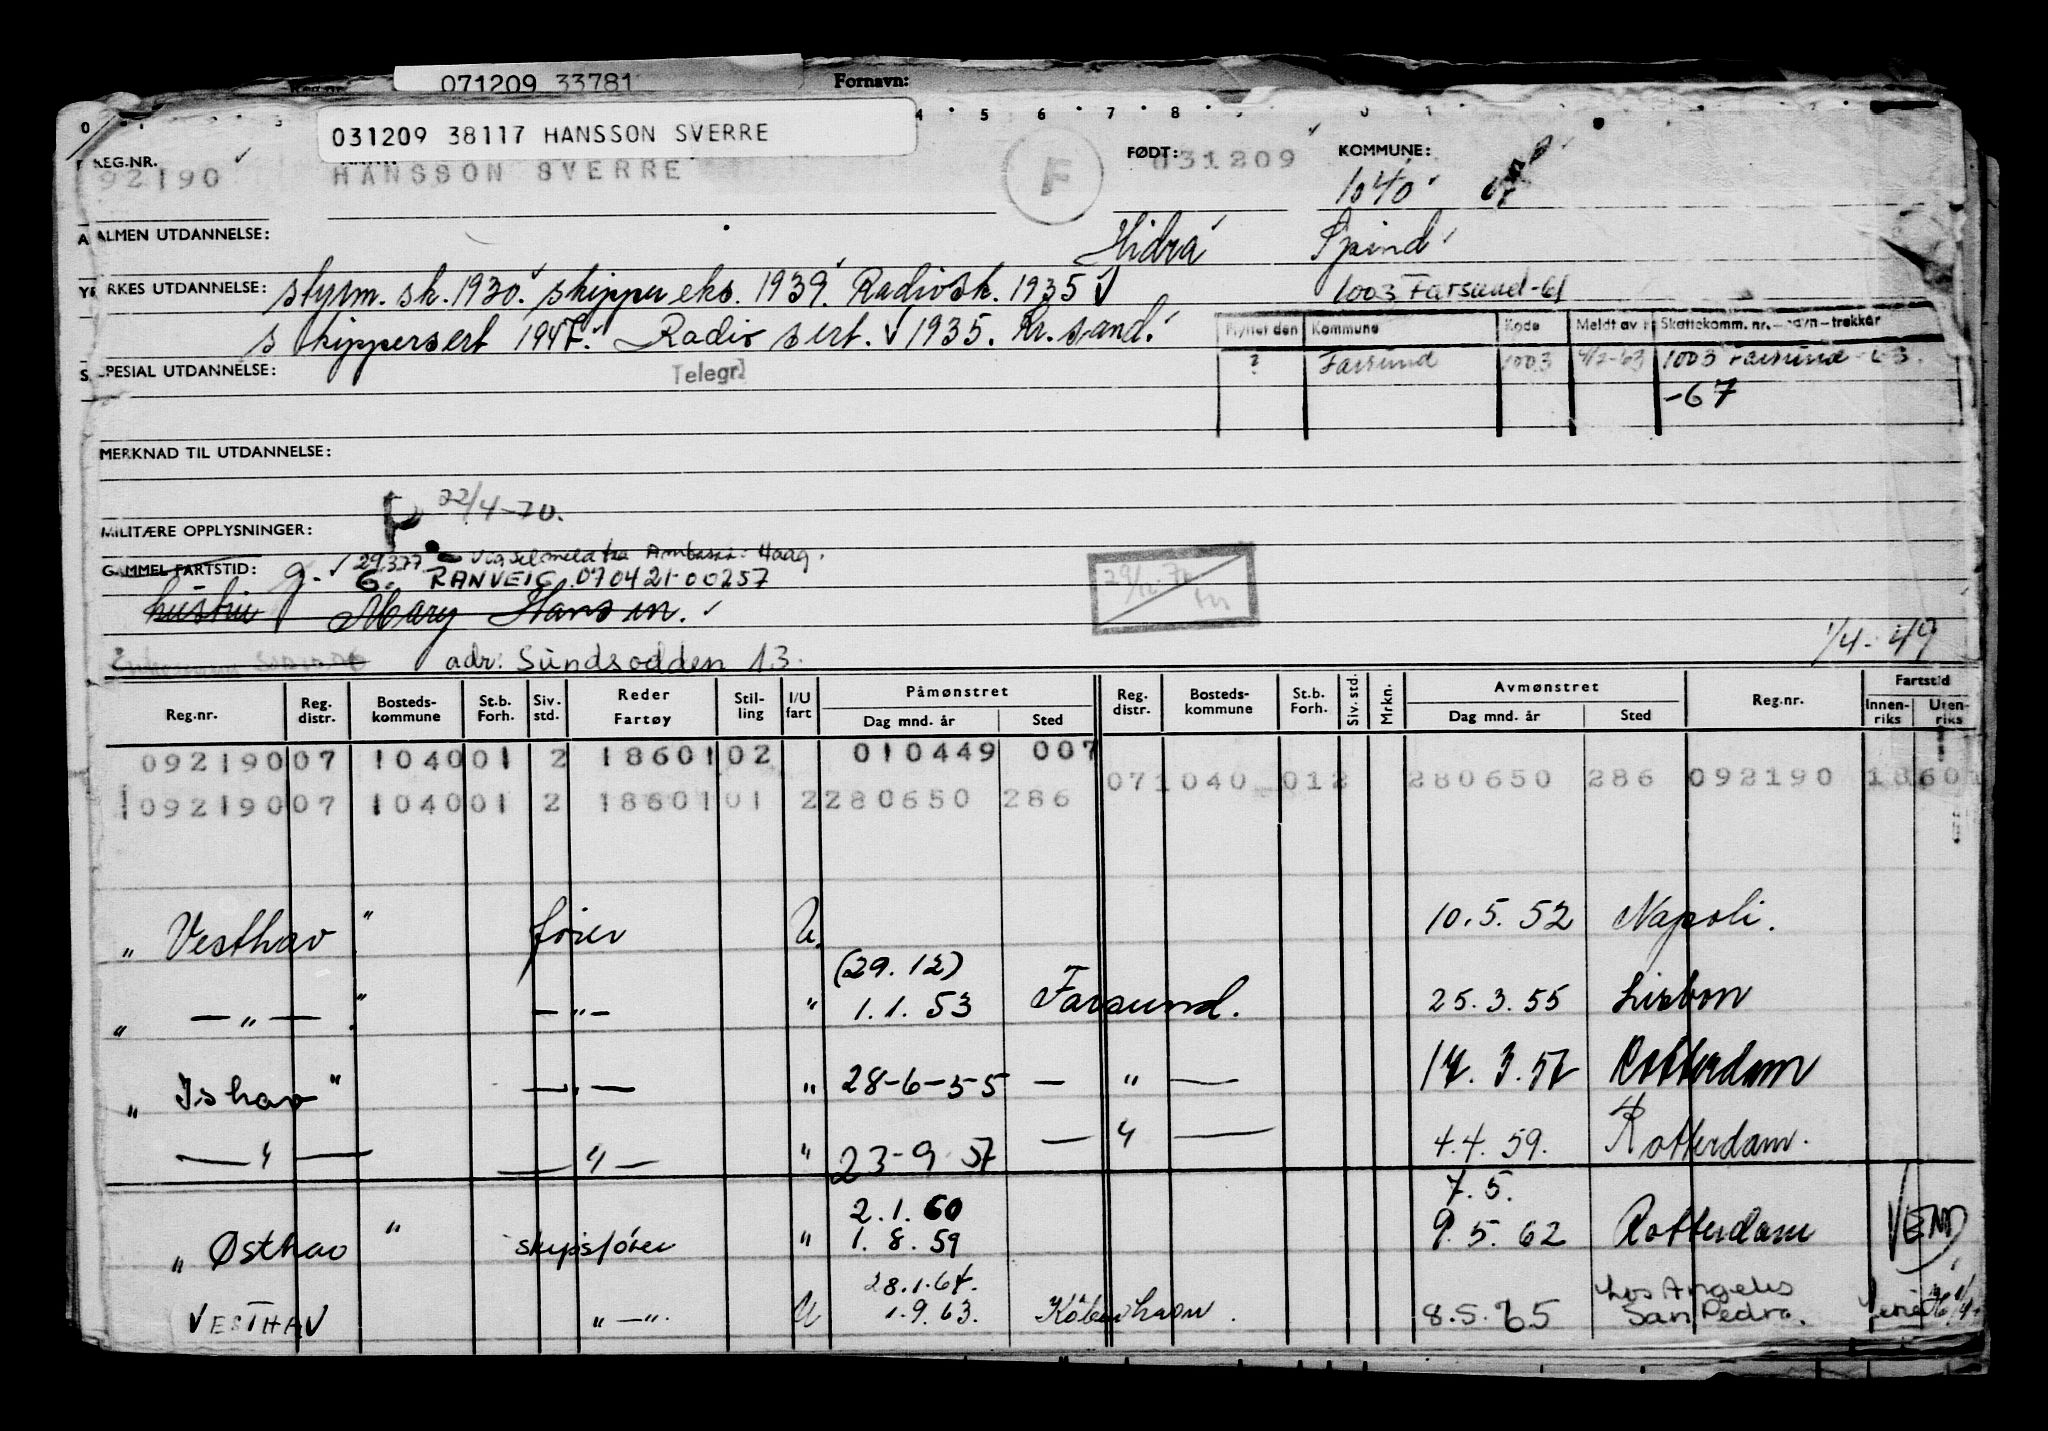 071209 33781 Fornavn:
031209 38117 HANSSON SVERRE
4 5 6 7 8
REG.NR. FØDT: KOMMUNE:
92190 HANSSON SVERRE F 031209 1040
ALMEN UTDANNELSE: Hidra Spind
YRKES UTDANNELSE: styrm. sk. 1930. skipper eks. 1939. Radiosk. 1935 1003 Farsund-61
skippersert 1947. Radio sert. 1935. Kr.sand.
Flyttet den Kommune Kode Meldt av Skattekomm. nr.-navn-trekkår
? Farsund 1003 4/2-63 1003 Farsund -63.
-67
SPESIAL UTDANNELSE: Telegr.
MERKNAD TIL UTDANNELSE:
P 22/4-70.
MILITÆRE OPPLYSNINGER:
29.3.77 Vigselmeld fra Ambass. Haag.
GAMMEL FARTSTID: g. G. RANVEIG 070421-00257
hustru Mary Hansson.
29/12-70
1/4-49
adr: Sundsodden 13.
Reg.nr. Reg. distr. Bosteds-kommune St.b. Forh. Siv. std. Reder Fartøy Stil-ling I/U fart Påmønstret Dag mnd. år Sted Reg. distr. Bosteds-kommune St.b. Forh. Siv. std. Mrkn. Avmønstret Dag mnd. år Sted Reg.nr. Fartstid Innen-riks Uten-riks
092190 07 1040 01 2 18601 02 010449 007
071040 012 280650 286 092190 18601
092190 07 1040 01 2 18601 01 2 280650 286
" Vesthav " fører U. 10.5.52 Napoli.
(29.12)
" — " — " — " — " 1.1.53 Farsund. 25.3.55 Lisbon
" Ishav " — " — " 28-6-55 — " — 17.3.57 Rotterdam
— " — — " — " 23-9-57 — " — 4.4.59. Rotterdam.
2.1.60 7.5.
" Østhav " skipsfører " 1.8.59 9.5.62 Rotterdam VEND
28.1.64. Los Angeles
VESTHAV " — " U 1.9.63. Köbenhavn. 8.5.65 San Pedro.